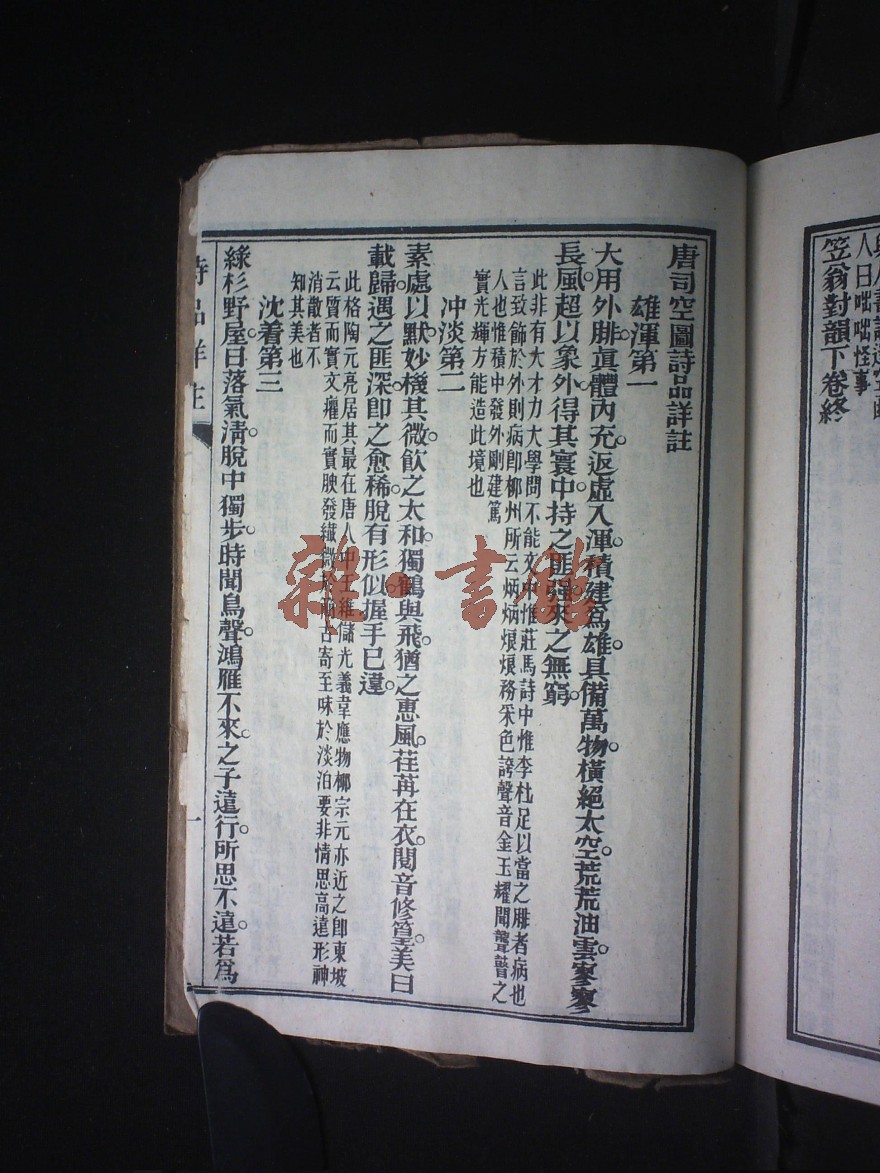 與人書
人曰咄咄怪事
笠翁對韻下卷終
唐司空圖詩品詳註
雄渾第一
大用外腓。眞體內充。返虛入渾。積健爲雄。具備萬物。橫絕太空。荒荒油雲。寥寥
長風。超以象外。得其寰中。持之匪强。來之無窮。
此非有大才力大學問不能文中惟莊馬詩中惟李杜足以當之腓者病也
言致飾於外則病卽柳州所云炳炳烺烺務采色誇聲音金玉耀聞聾瞽之
人也惟積中發外剛建篤
實光輝方能造此境也
冲淡第二
素處以默。妙機其微。飮之太和。獨鶴與飛。猶之惠風。荏苒在衣。閱音修篁。美曰
載歸。遇之匪深。卽之愈稀。脫有形似。握手已違。
此格陶元亮居其最在唐人中王維儲光義韋應物柳宗元亦近之卽東坡
云質而實文癯而實腴發纎微於簡古寄至味於淡泊要非情思高遠形神
消散者不
知其美也
沈着第三
綠杉野屋。日落氣淸。脫巾獨步。時聞鳥聲。鴻雁不來。之子遠行。所思不遠。若爲
詩品詳註
一
雜·書館